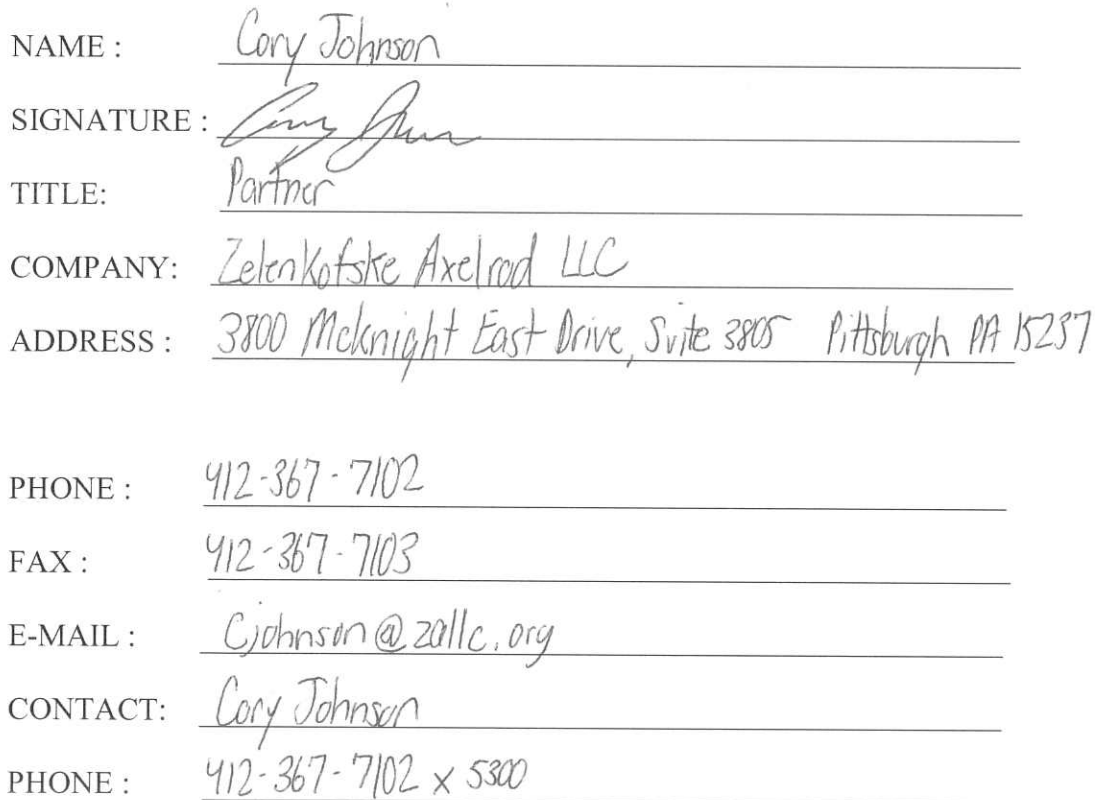 NAME : Cory Johnson
SIGNATURE :
TITLE: Partner
COMPANY: Zelenkofske Axelrod LLC
ADDRESS : 3800 McKnight East Drive, Suite 3805 Pittsburgh PA 15237
PHONE : 412-367-7102
FAX : 412-367-7103
E-MAIL : Cjohnson@zallc.org
CONTACT: Cory Johnson
PHONE : 412-367-7102 x 5300